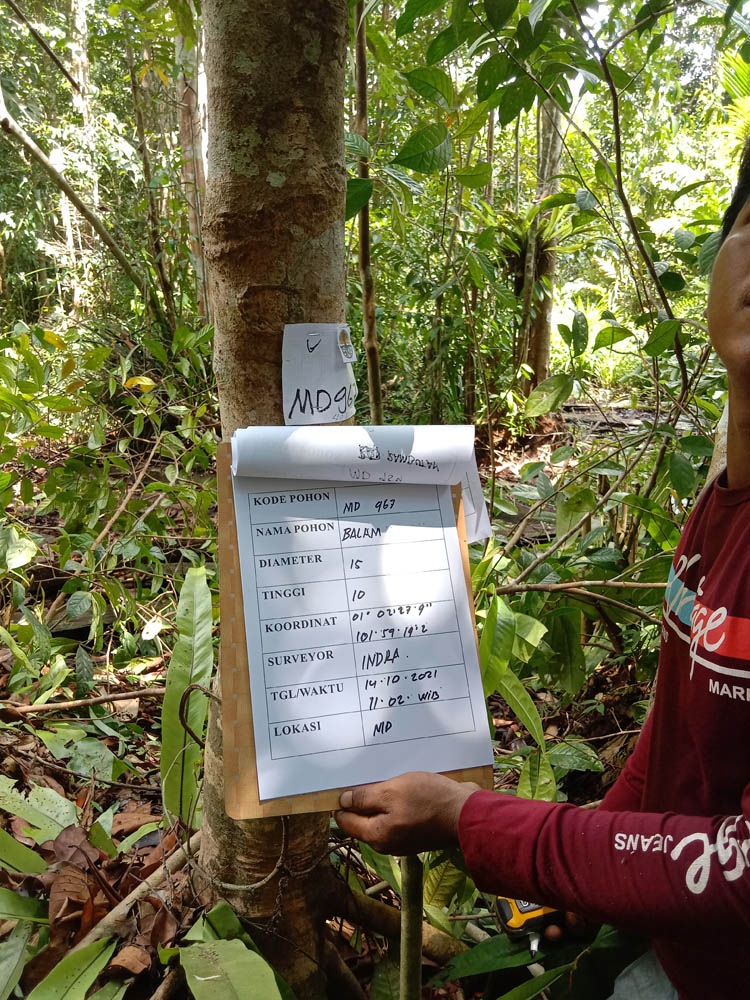 MD 967
KODE POHON MD 967
NAMA POHON BALAM
DIAMETER 15
TINGGI 10
KOORDINAT 01° 02'27.9"
101.59.19'2
SURVEYOR INDRA.
TGL/WAKTU 14.10.2021
11.02. WIB
LOKASI MD
MAR
JEANS